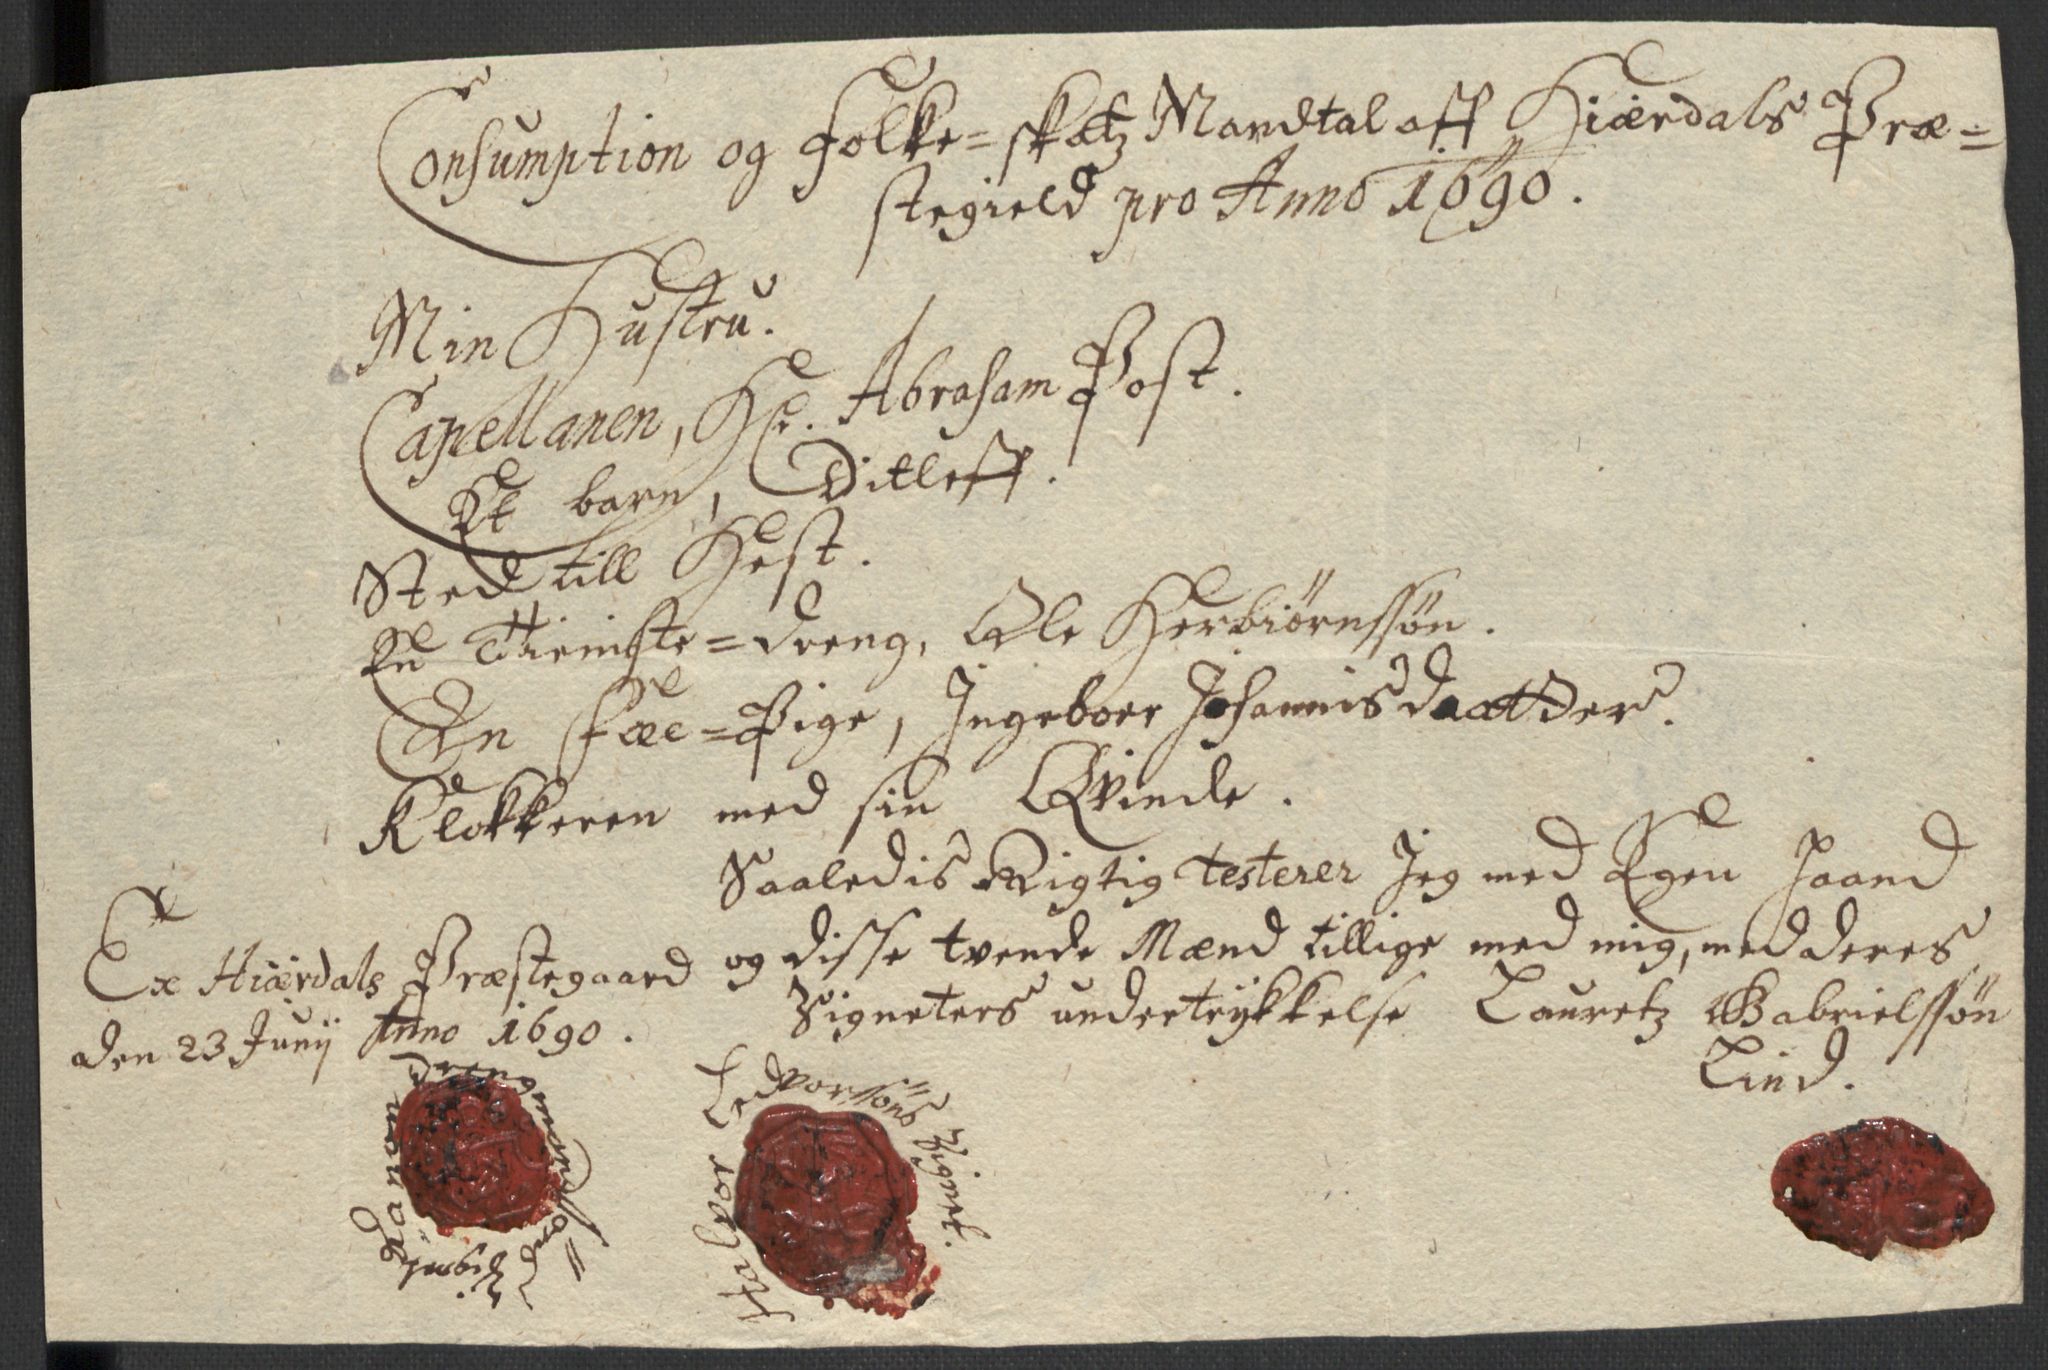 Consumption og Folke=skatz Mandtal aff Hiærdals Præ=
stegield pro Anno 1690.
Min Hustru.
Capellanen, Hr. Abraham Post.
Et barn, Ditleff.
Sted till Hest.
En Tieniste=dreng, Ole Herbiörnssön.
En Fæe=Pige, Ingeboer Johannisdaatter.
Klokkeren med sin Qvinde.
Saaledis Rigtig testerer Jeg med Egen Haand
og disse tvende Mænd tillige med mig, med deres
Signeters undertrykkelse Lauretz Gabrielssön
Lind.
Ex Hiærdals Præstegaard
den 23 Junij Anno 1690.
Signet
Halvor Ledvorssöns Signet.